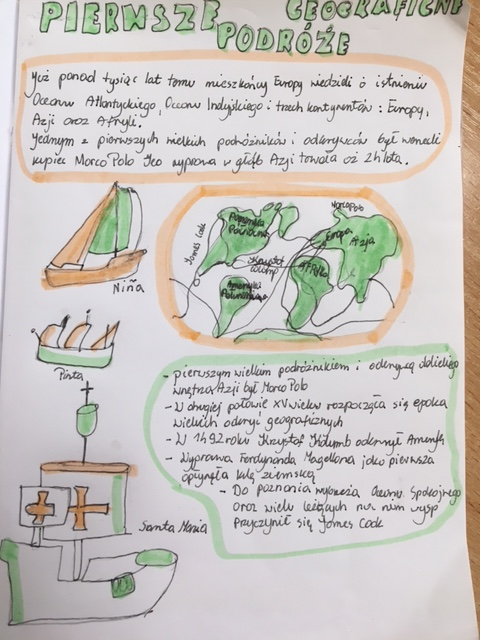 PIERWSZE GEOGRAFICNE
PODRÓŻE
Już ponad tysiąc lat temu mieszkańcy Europy wiedzieli o istnieniu
Oceanu Atlantyckiego, Oceanu Indyjskiego i trzech kontynentów: Europy,
Azji oraz Afryki.
Jednym z pierwszych wielkich podróżników i odkrywców był wenecki
kupiec Marco Polo Jego wyprawa w głąb Azji trwała aż 24 lata.
Niña
Pinta
Santa Maria
James Cook
Ameryka
Północna
Krzysztof
Kolumb
Ameryka
Południowa
Marco Polo
Europa
Azja
Afryka
- pierwszym wielkim podróżnikiem i odkrywcą dalekiego
wnętrza Azji był Marco Polo
- W drugiej połowie XV wieku rozpoczęła się epoka
wielkich odkryć geograficznych
- W 1492 roku Krzysztof Kolumb odkrył Amerykę
- Wyprawa Ferdynanda Magellana jako pierwsza
opłynęła kulę ziemską
- Do poznania wybrzeża Oceanu Spokojnego
oraz wielu leżących na nim wysp
przyczynił się James Cook